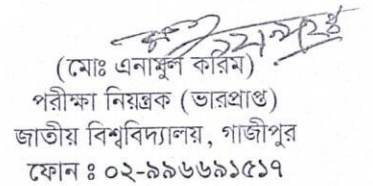 (মোঃ এনামুল করিম)
পরীক্ষা নিয়ন্ত্রক (ভারপ্রাপ্ত)
জাতীয় বিশ্ববিদ্যালয়, গাজীপুর
ফোন ঃ ০২-৯৯৬৬৯১৫১৭